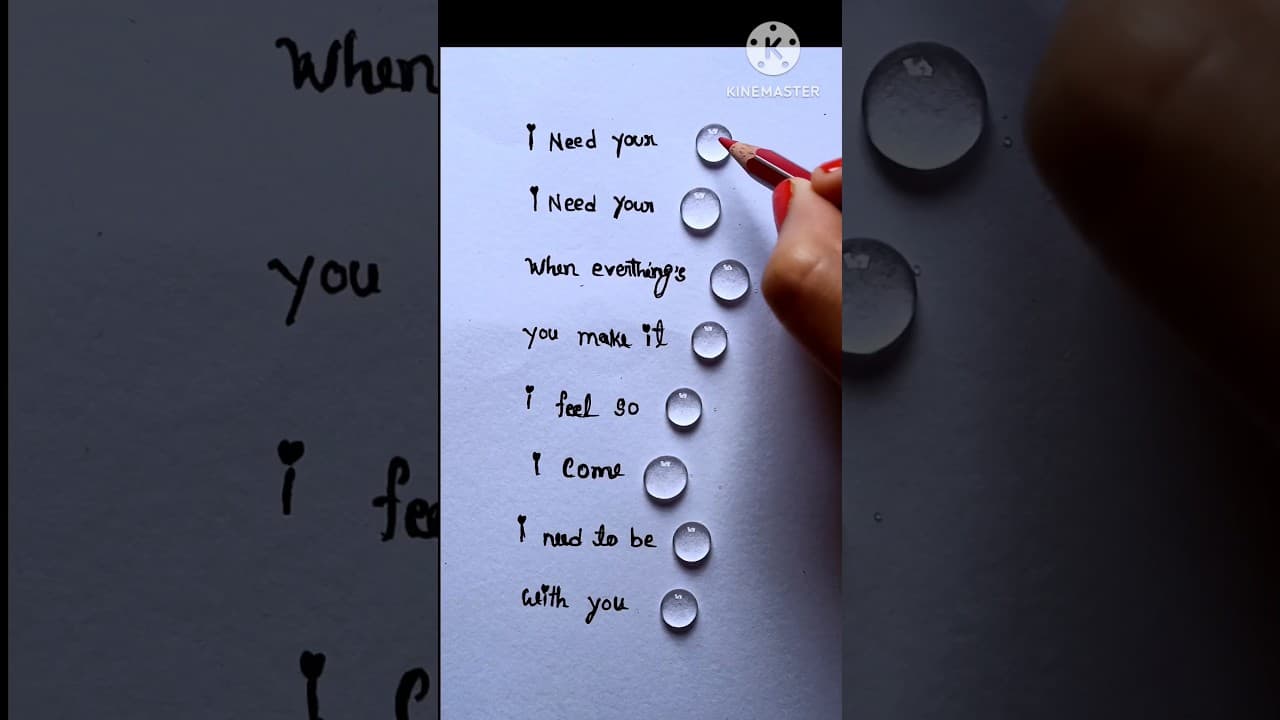 KINEMASTER
I Need your
I Need your
When everthing's
you make it
i feel so
I Come
I need to be
with you
When
you
i fee
I C